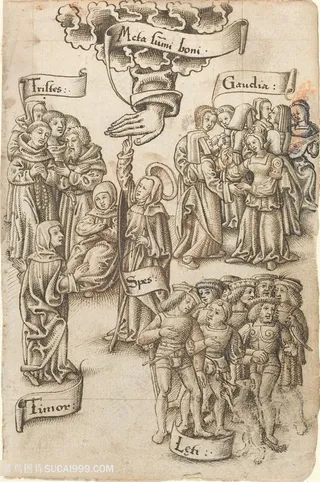 Meta sum̄i boni.
Tristes:.
Gaudia:
Spes
Timor.
Lęti:.
SUCAI999.COM